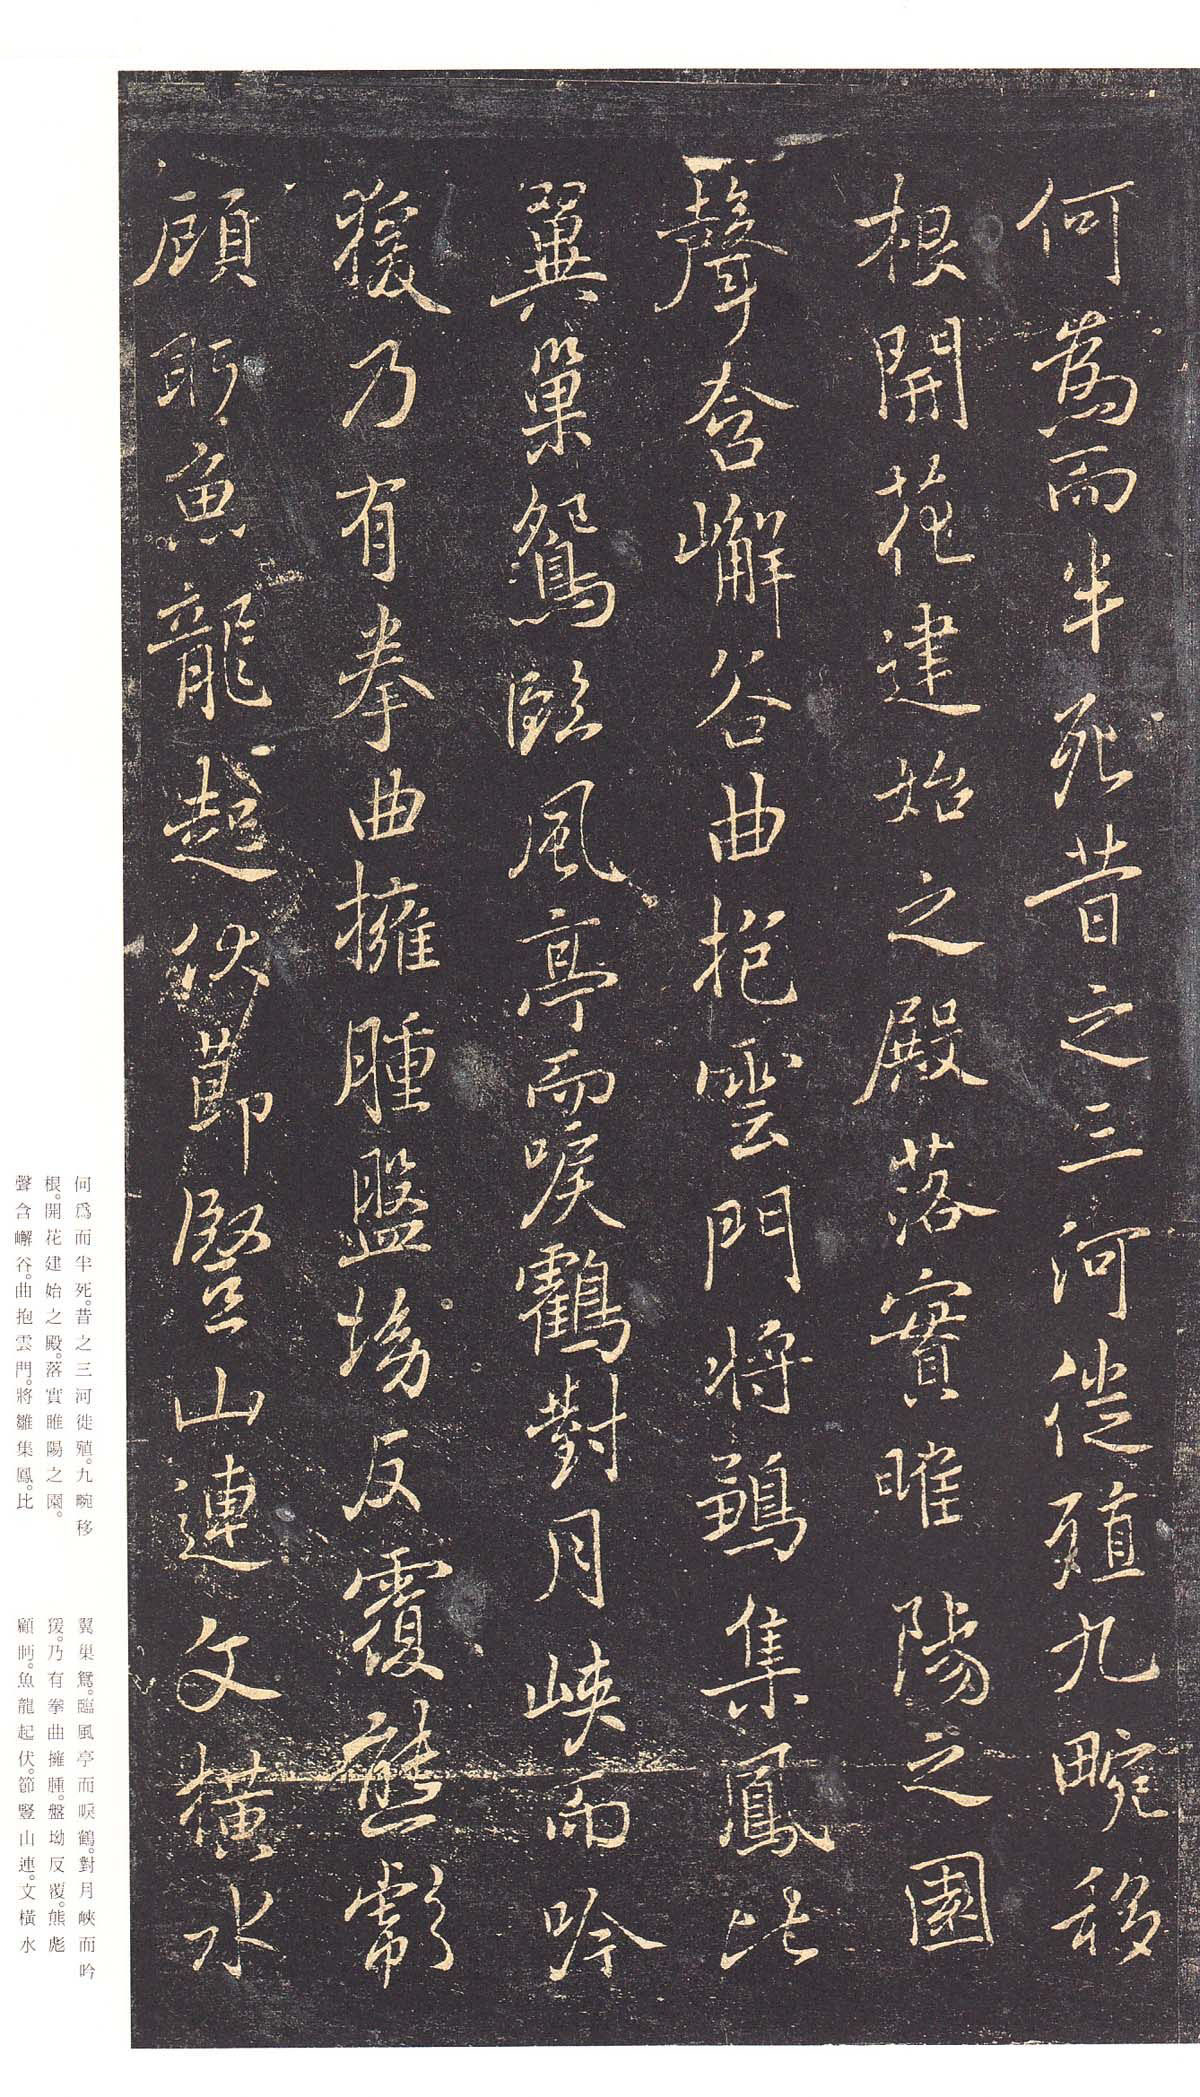 何爲而半死昔之三河徙殖九畹移
根開花建始之殿落實睢陽之園
聲含嶰谷曲抱雲門將鶵集鳳比
翼巢鴛臨風亭而唳鶴對月峽而吟
猨乃有拳曲擁腫盤坳反覆熊彪
顧眄魚龍起伏節豎山連文橫水
何爲而半死。昔之三河徙殖。九畹移
根。開花建始之殿。落實睢陽之園。
聲含嶰谷。曲抱雲門。將雛集鳳。比
翼巢鴛。臨風亭而唳鶴。對月峽而吟
猨。乃有拳曲擁腫。盤坳反覆。熊彪
顧眄。魚龍起伏。節豎山連。文橫水